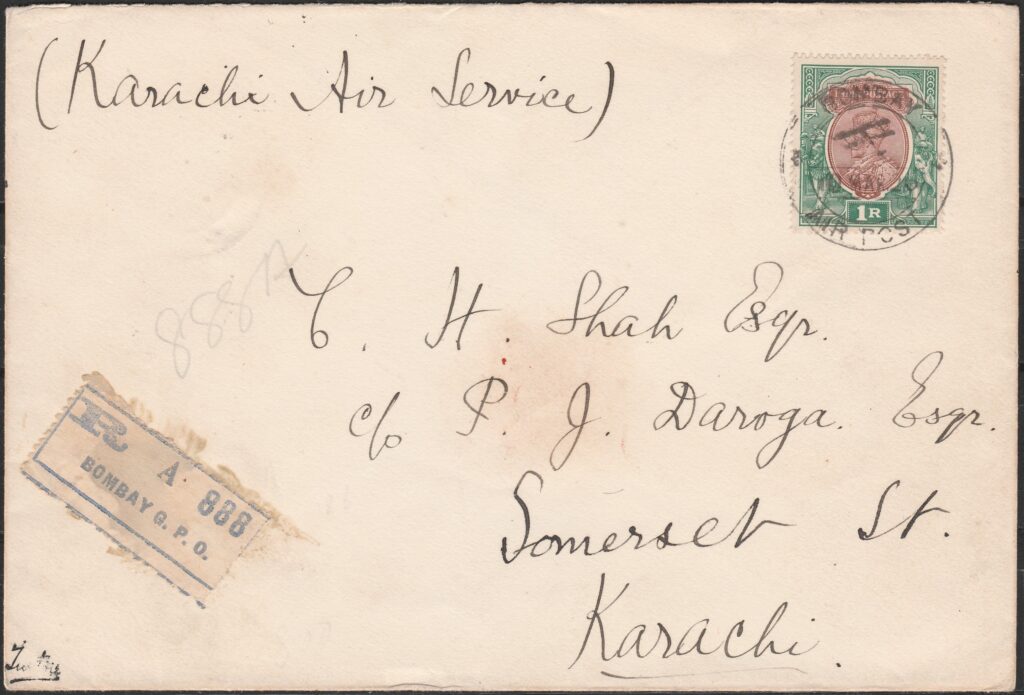 (Karachi Air Service)
BOMBAY
AIR POST
1 R
888 A
C. H. Shah Esqr.
c/o P. J. Daroga. Esqr.
Somerset St.
Karachi.
R
A 888
BOMBAY G. P. O.